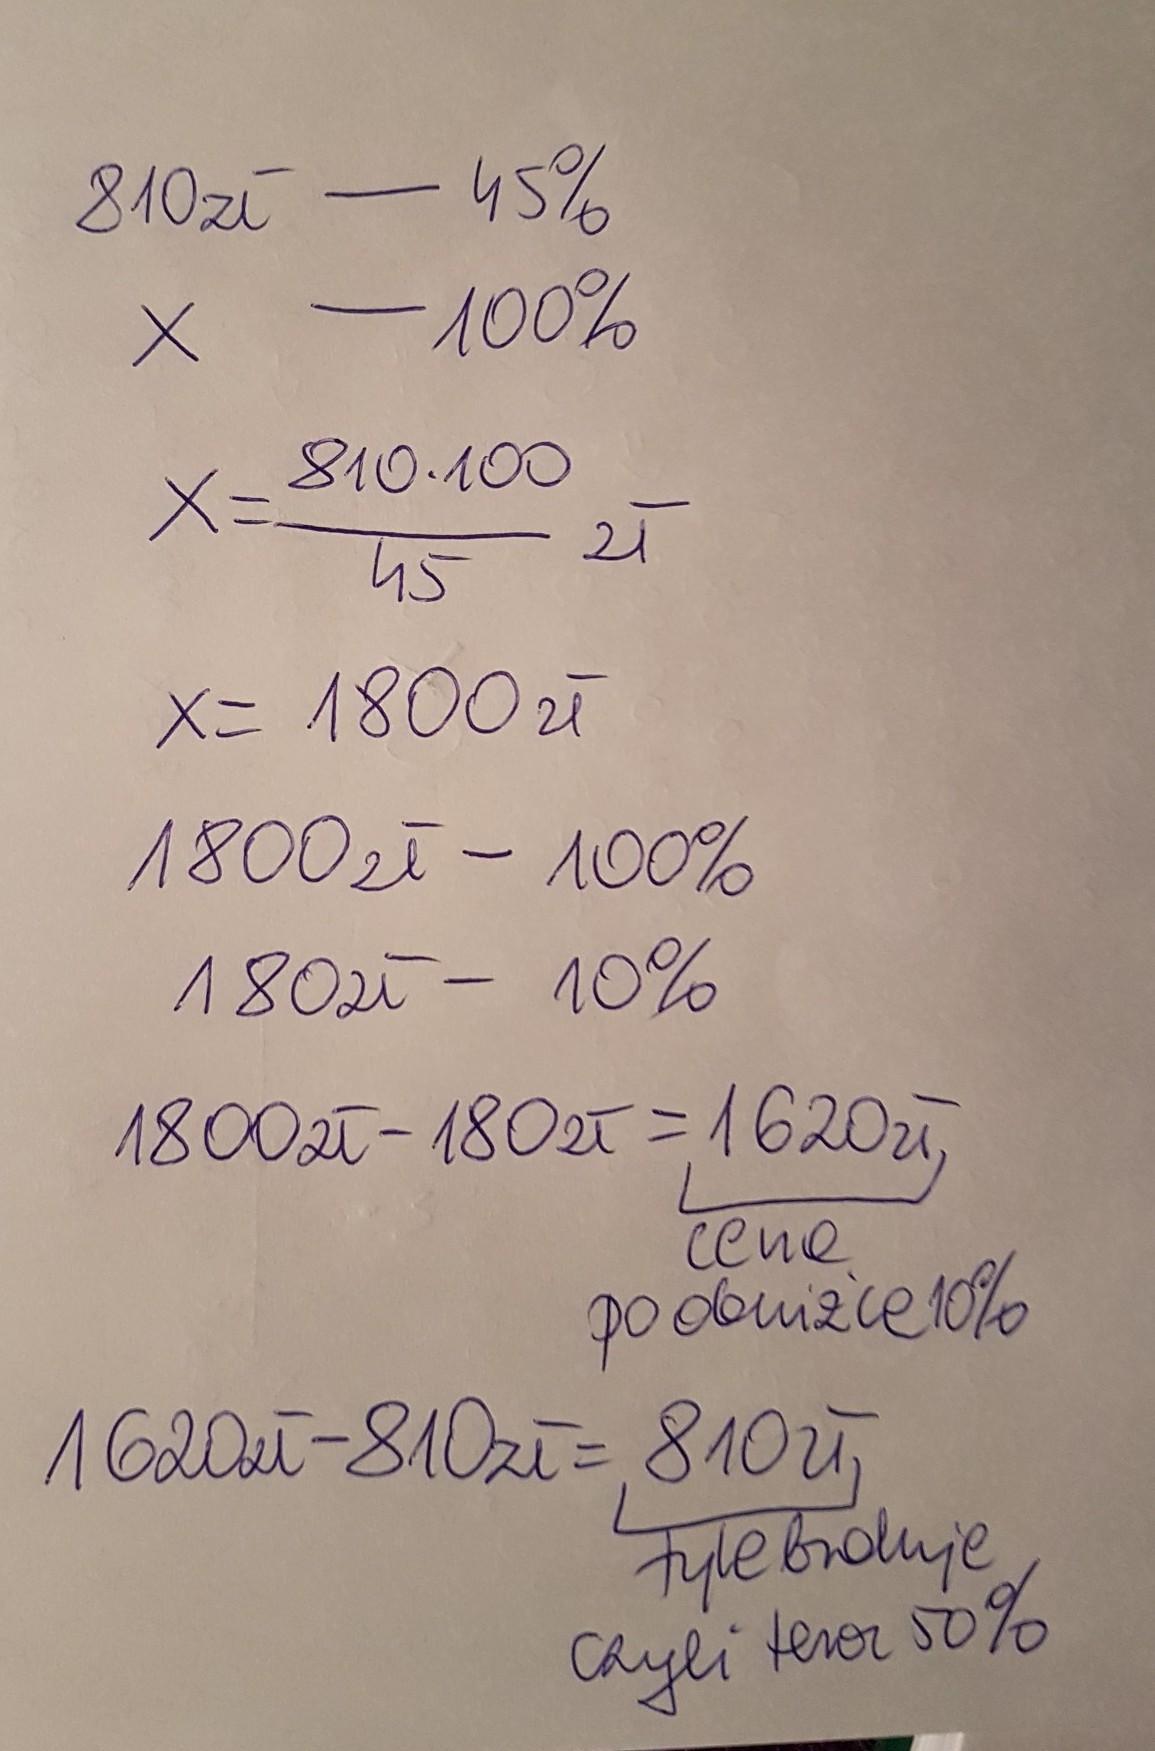 810zł — 45%
x — 100%
x = 810·100 / 45 zł
x = 1800zł
1800zł - 100%
180zł - 10%
1800zł - 180zł = 1620zł
cena
po obniżce 10%
1620zł - 810zł = 810zł
tyle brakuje
czyli teraz 50%